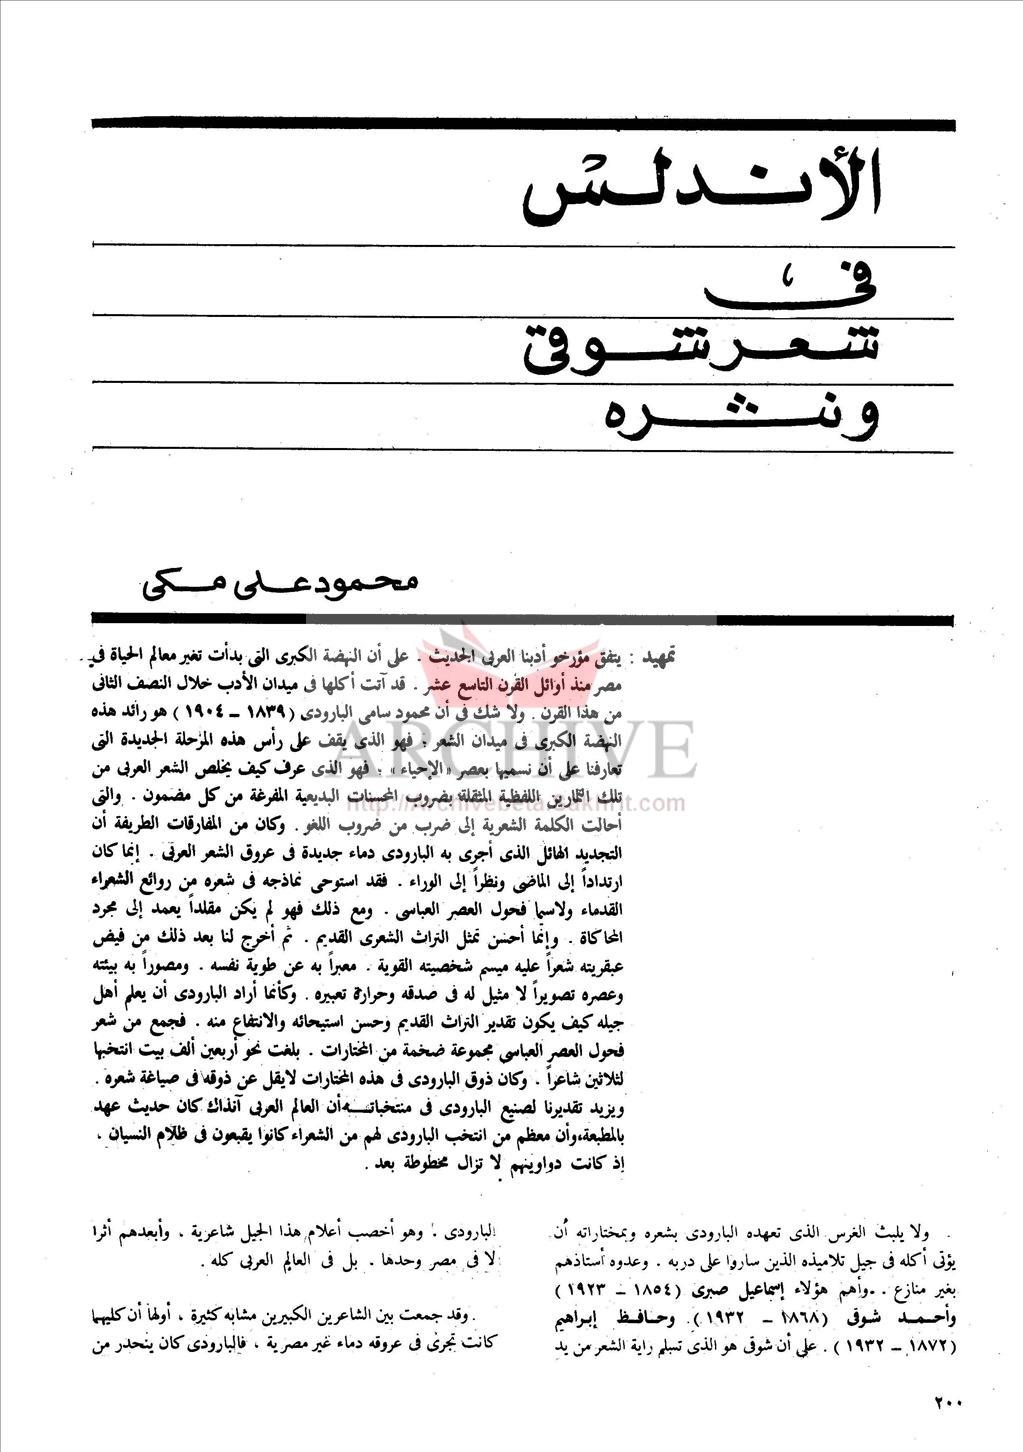 الأندلس
في
شعر شوقي
ونثره
محمود على مكى
تمهيد : يتفق مؤرخو أدبنا العربى الحديث . على أن النهضة الكبرى التى بدأت تغير معالم الحياة فى
مصر منذ أوائل القرن التاسع عشر . قد آتت أكلها فى ميدان الأدب خلال النصف الثانى
من هذا القرن . ولا شك فى أن محمود سامى البارودى (١٨٣٩ – ١٩٠٤) هو رائد هذه
النهضة الكبرى فى ميدان الشعر ؛ فهو الذى يقف على رأس هذه المرحلة الجديدة التى
تعارفنا على أن نسميها بعصر «الإحياء» . فهو الذى عرف كيف يخلص الشعر العربى من
تلك التمارين اللفظية المثقلة بضروب المحسنات البديعية المفرغة من كل مضمون . والتى
أحالت الكلمة الشعرية إلى ضرب من ضروب اللغو . وكان من المفارقات الطريفة أن
التجديد الهائل الذى أجرى به البارودى دماء جديدة فى عروق الشعر العربى . إنما كان
ارتداداً إلى الماضى ونظراً إلى الوراء . فقد استوحى نماذجه فى شعره من روائع الشعراء
القدماء ولاسيما فحول العصر العباسى . ومع ذلك فهو لم يكن مقلداً يعمد إلى مجرد
المحاكاة . وإنما أحسن تمثل التراث الشعرى القديم . ثم أخرج لنا بعد ذلك من فيض
عبقريته شعراً عليه ميسم شخصيته القوية . معبراً به عن طوية نفسه . ومصوراً به بيئته
وعصره تصويراً لا مثيل له فى صدقه وحرارة تعبيره . وكأنما أراد البارودى أن يعلم أهل
جيله كيف يكون تقدير التراث القديم وحسن استيحائه والانتفاع منه . فجمع من شعر
فحول العصر العباسى مجموعة ضخمة من المختارات . بلغت نحو أربعين ألف بيت انتخبها
لثلاثين شاعراً . وكان ذوق البارودى فى هذه المختارات لايقل عن ذوقه فى صياغة شعره .
ويزيد تقديرنا لصنيع البارودى فى منتخباتـــه أن العالم العربى آنذاك كان حديث عهد
بالمطبعة،وأن معظم من انتخب البارودى لهم من الشعراء كانوا يقبعون فى ظلام النسيان ،
إذ كانت دواوينهم لا تزال مخطوطة بعد .
ولا يلبث الغرس الذى تعهده البارودى بشعره وبمختاراته أن
يؤتى أكله فى جيل تلاميذه الذين ساروا على دربه . وعدوه أستاذهم
بغير منازع . وأهم هؤلاء إسماعيل صبرى (١٨٥٤ – ١٩٢٣)
وأحمـــد شوقى (١٨٦٨ – ١٩٣٢) وحافـــظ إبراهيم
(١٨٧٢ – ١٩٣٢) . على أن شوقى هو الذى تسلم راية الشعر من يد
البارودى . وهو أخصب أعلام هذا الجيل شاعرية ، وأبعدهم أثرا
لا فى مصر وحدها . بل فى العالم العربى كله .
وقد جمعت بين الشاعرين الكبيرين مشابه كثيرة ، أولها أن كليهما
كانت تجرى فى عروقه دماء غير مصرية ، فالبارودى كان ينحدر من
٢٠٠
ARCHIVE
http://Archivebeta.Sakhrit.com